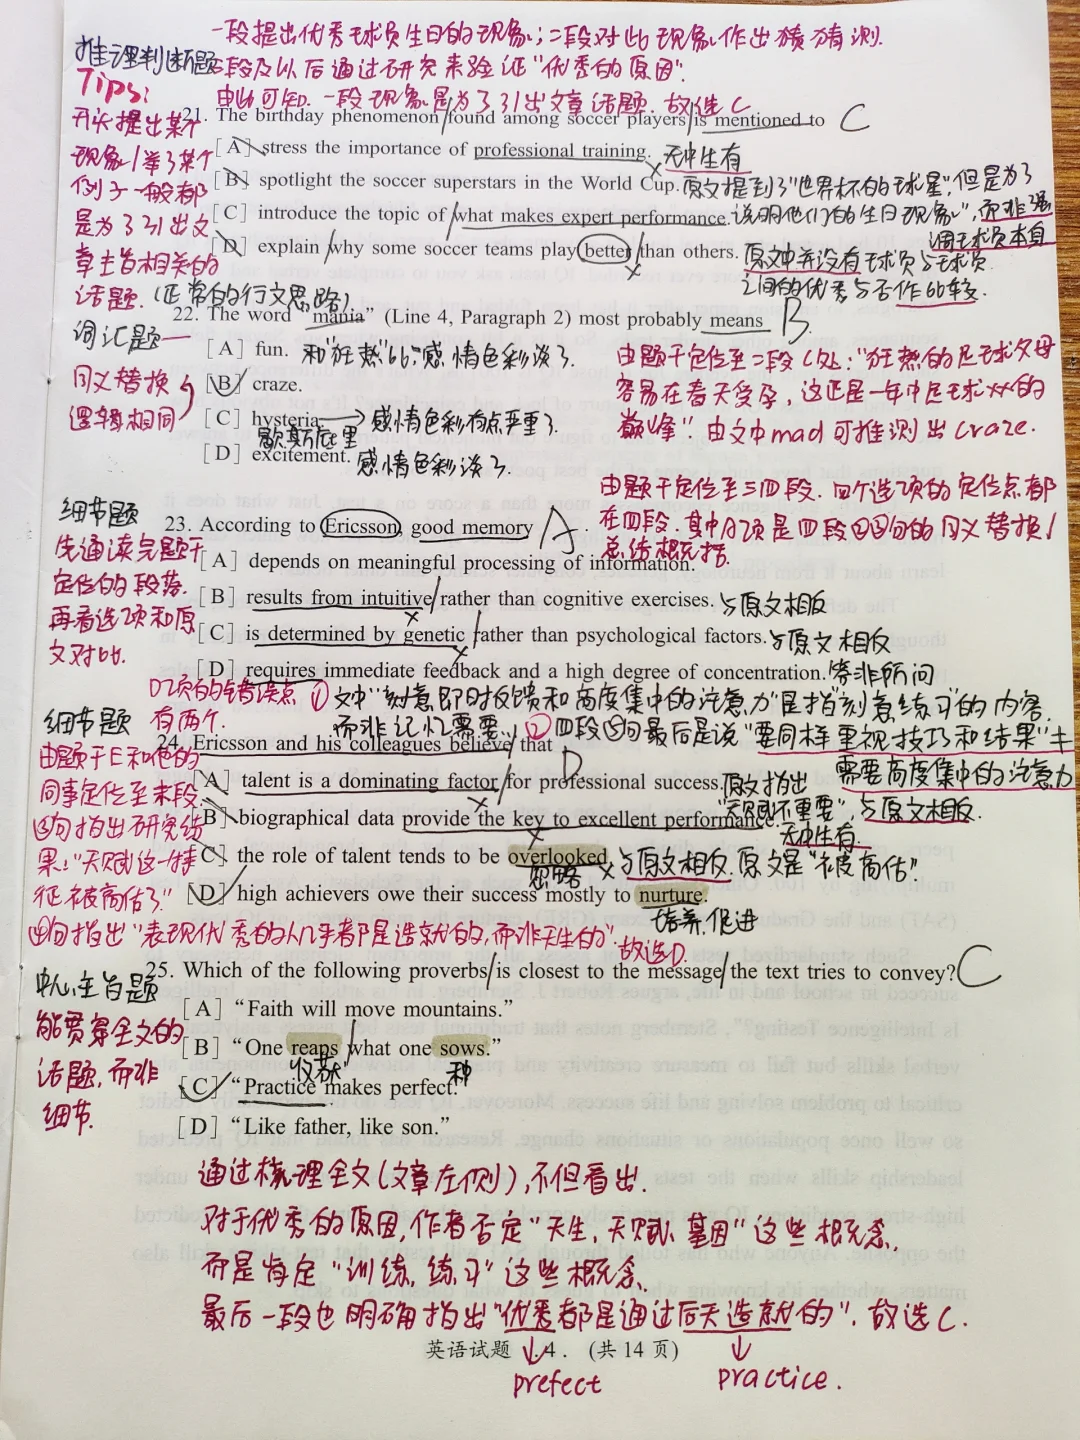 一段提出优秀球员生日的现象;二段对此现象作出猜测.
推理判断题
三段及以后通过研究来验证"优秀的原因".
Tips:
由此可知.一段现象是为了引出文章话题.故选C
21. The birthday phenomenon found among soccer players is mentioned to C
开头提出某个
现象/举了某个
例子一般都
是为了引出文
章主旨相关的
话题.(正常的行文思路).
[A] stress the importance of professional training. 无中生有
[B] spotlight the soccer superstars in the World Cup. 原文提到了"世界杯的球星",但是为了
说明他们的"生日现象",而非强
调球员本身
[C] introduce the topic of what makes expert performance.
[D] explain why some soccer teams play better than others. 原文中并没有球员与球员
之间的优秀与否作比较.
22. The word "mania" (Line 4, Paragraph 2) most probably means B
词汇题—
同义替换
逻辑相同
[A] fun. 和"狂热"比;感情色彩淡了.
[B] craze.
[C] hysteria. → 感情色彩有点严重了.
歇斯底里
[D] excitement. 感情色彩淡了.
由题干定位至二段C处:"狂热的足球父母
容易在春天受孕,这正是一年中足球
巅峰".由文中mad可推测出craze.
由题干定位至三四段.四个选项的定位点都
在四段.其中A项是四段四句的同义替换/
总结概括.
细节题
23. According to Ericsson good memory A.
先通读完题干
定位的段落.
再看选项和原
文对比.
[A] depends on meaningful processing of information.
[B] results from intuitive rather than cognitive exercises. 与原文相反
[C] is determined by genetic rather than psychological factors. 与原文相反
[D] requires immediate feedback and a high degree of concentration. 答非所问
D项的错误点
有两个.
① 文中"刻意即时反馈和高度集中的注意力"是指"刻意练习"的内容.
而非记忆需要. ② 四段⑤句最后是说"要同样重视技巧和结果"+
需要高度集中的注意力
细节题
24. Ericsson and his colleagues believe that D
由题干E和他的
同事定位至末段
③句指出研究结
果:"天赋这一特
征被高估了."
[A] talent is a dominating factor for professional success. 原文指出
"天赋不重要",与原文相反.
[B] biographical data provide the key to excellent performance. 无中生有
[C] the role of talent tends to be overlooked. 与原文相反.原文是"被高估".
忽略
[D] high achievers owe their success mostly to nurture.
培养,促进
④句指出"表现优秀的人几乎都是造就的,而非天生的".故选D.
25. Which of the following proverbs is closest to the message the text tries to convey? C
中心主旨题
能贯穿全文的
话题,而非
细节.
[A] "Faith will move mountains."
[B] "One reaps what one sows."
收获 种
[C] "Practice makes perfect."
[D] "Like father, like son."
通过梳理全文(文章左侧),不但看出.
对于优秀的原因,作者否定"天生,天赋,基因"这些概念,
而是肯定"训练,练习"这些概念.
最后一段也明确指出"优秀都是通过后天造就的".故选C.
英语试题 . 4 . (共 14 页)
prefect practice.